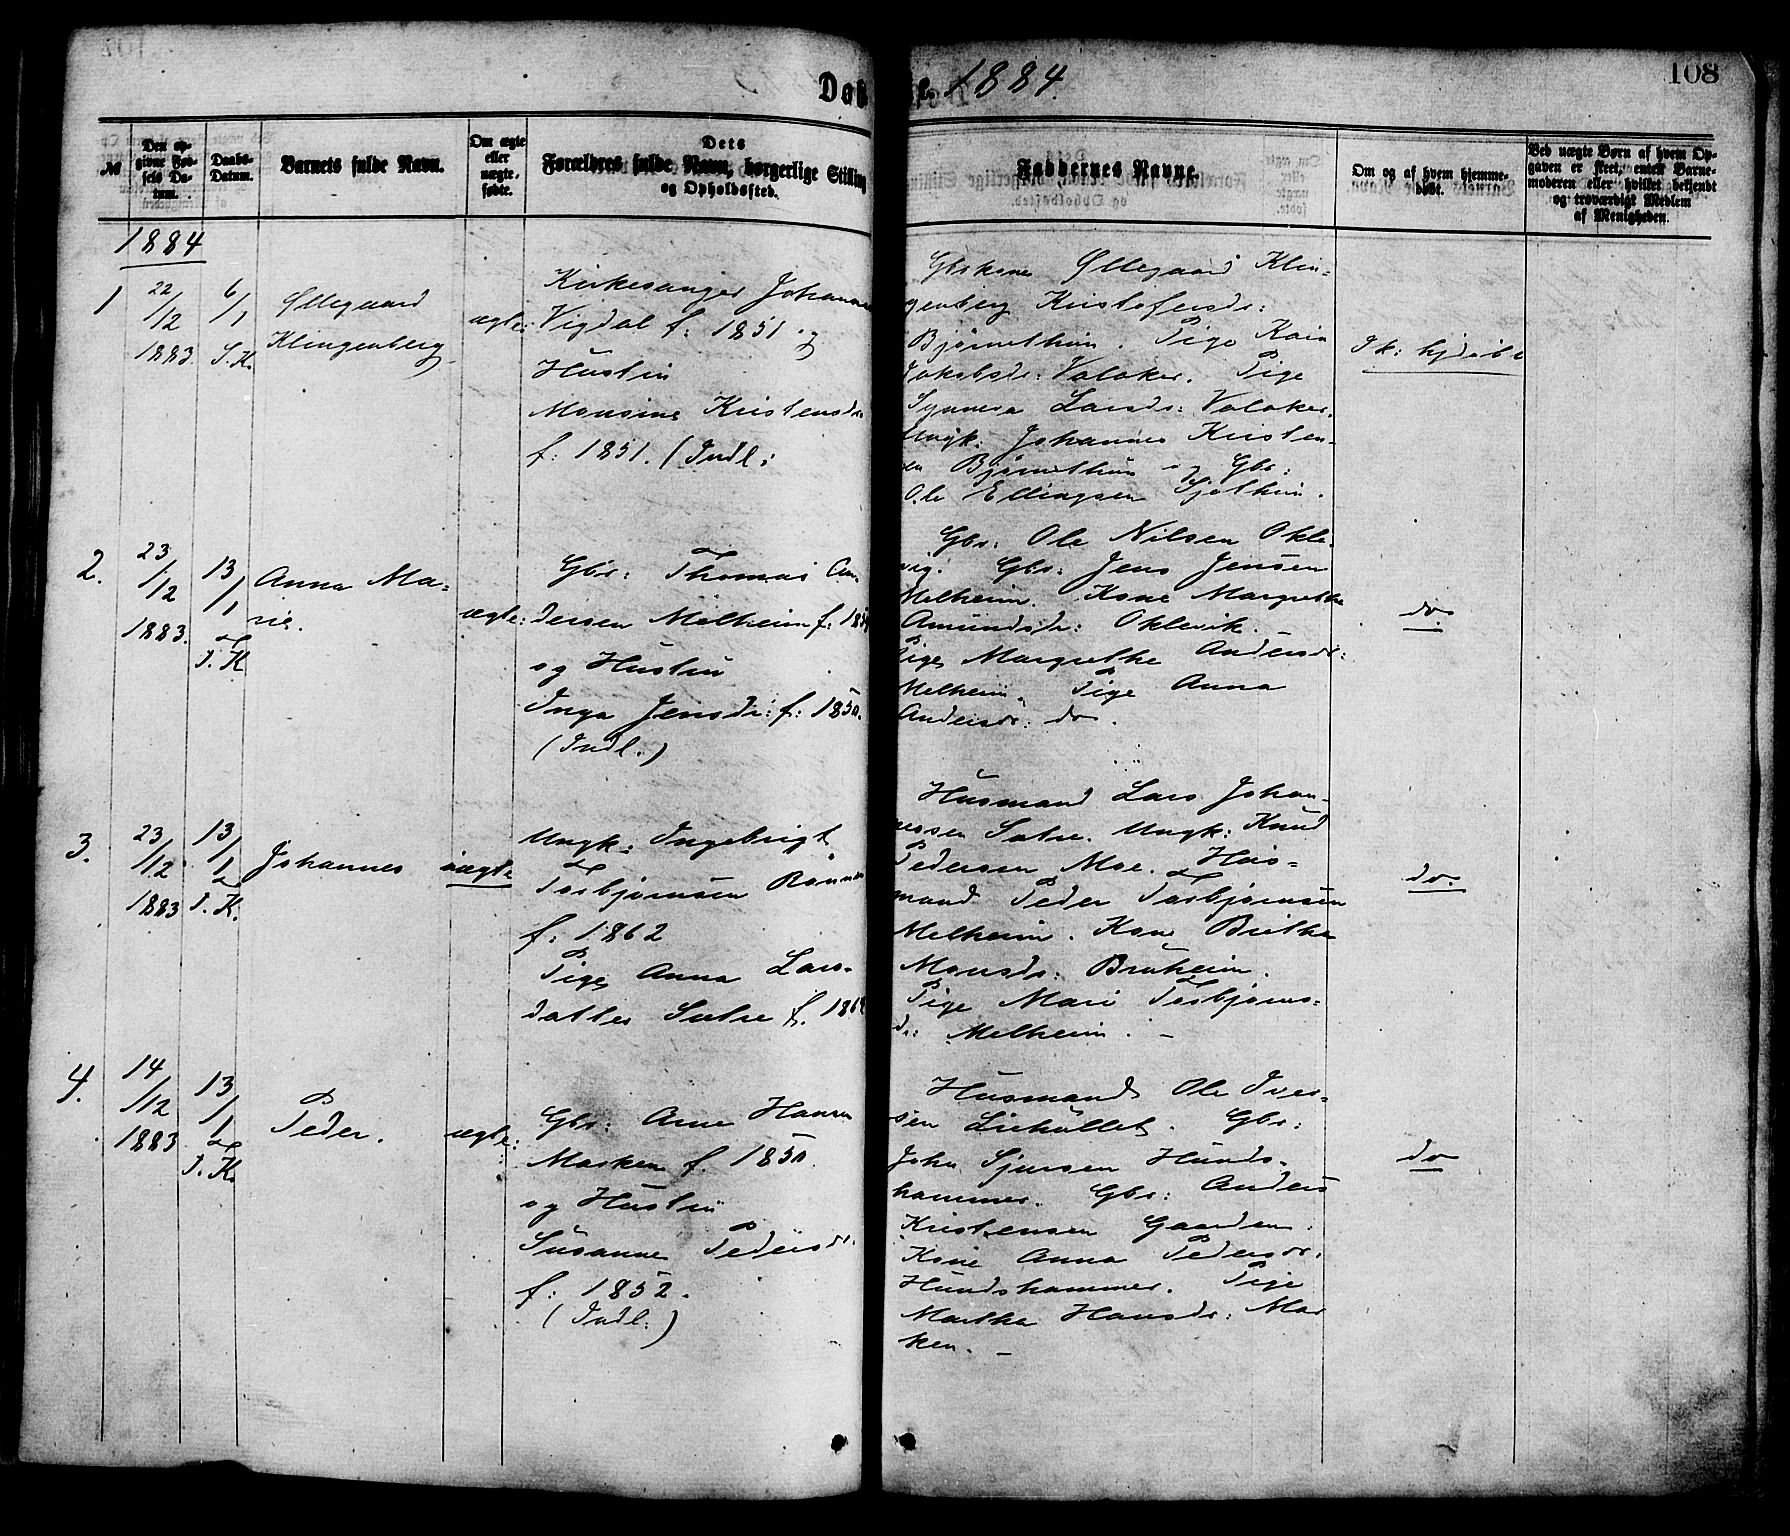 Døb
e. 1884.
108
№
Den op-
givne Fød-
sels Da-
tum.
Daabs-
Datum.
Barnets fulde Navn.
Om ægte
eller
uægte-
fødte.
Dets
Forældres fulde Navn, borgerlige Stilling
og Opholdssted.
Faddernes Navne.
Om og af hvem hjemme-
døbt.
Ved uægte Børn af hvem Op-
gaven er skeet, enten Barne-
moderen eller hvilket bekjendt
og troværdigt Medlem
af Menigheden.
1884
1
22/12 1883.
6/1 S.K.
Øllegaard
Klingenberg
ægte:
Kirkesanger Johannes
Vigdal f: 1851 og
Hustru
Monsine Kristensdr
f: 1851. (Indl:
Gbrkone Øllegaard Klin-
genberg Kristofersdr:
Bjørnethun. Pige Kari
Jakobsdr: Valaker. Pige
Synneva Larsdr: Valaker.
Ungk: Johannes Kristen-
en Bjørnethun og Gbr:
Ole Ellingsen
Ik: hjdøbt
2.
23/12 1883.
13/1 I.K
Anna Ma-
rie.
ægte:
Gbr: Thomas An-
dersen Melheim f: 185
og Hustru
Inga Jensdr: f: 1850.
(Indl.)
Gbr: Ole Nilsen Okle-
vig. Gbr: Jens Jensen
Melheim. Kone Margrethe
Amundsdr: Oklevik.
Pige Margrethe Andersdr:
Melheim. Pige Anna
Andersdr: do.
do.
3.
23/12 1883
13/1 I.K.
Johannes
uægte
Ungk: Ingebrigt
Torbjørnsen
f: 1862
Pige Anna Lars-
datter Sætre f. 186
Husmand Lars Johan-
nessen Sætre. Ungk: Knud
Pedersen Moe. Hus-
mand Peder Torbjørnsen
Melheim. Kone Brithe
Monsdr: Bruheim.
Pige Mari Torbjørns-
dr: Melheim. –
do.
4.
14/12 1883
13/1 I.K.
Peder.
ægte:
Gbr: Arne Hansen
Marken f. 1850.
og Hustru
Susanne Pedersdr:
f: 1852.
(Indl:)
Husmand Ole Iver-
sen Liehullet. Gbr:
John Sjursen Hunds-
hammer. Gbr: Anders
Kristensen Gaarden.
Kone Anna Pedersdr:
Hundshammer. Pige
Martha Hansdr: Mar
ken. –
do